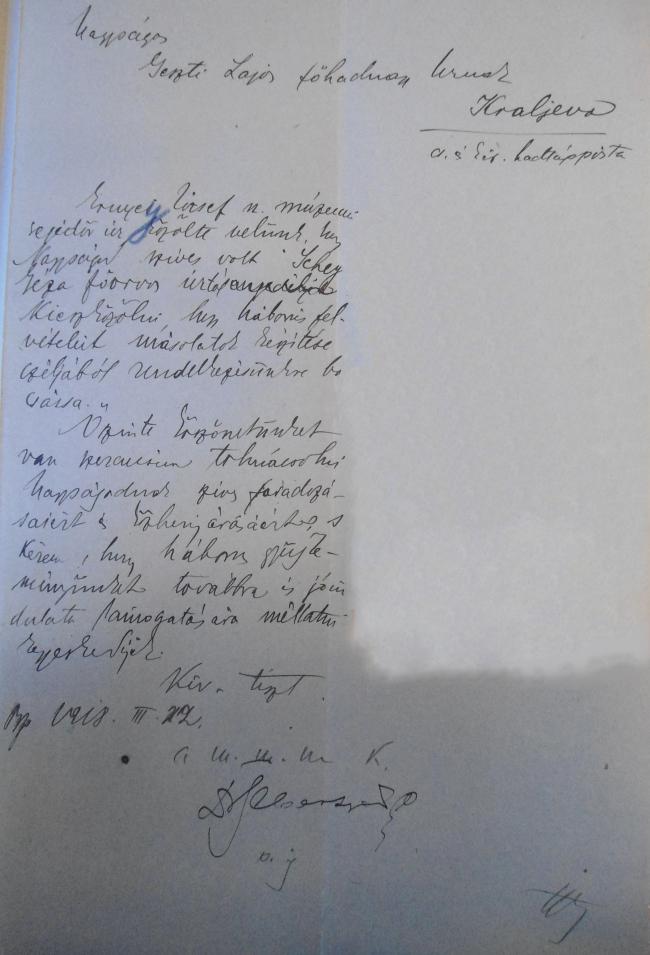 Nagyságos
Geszti Lajos főhadnagy Urnak
Kraljevo
cs. és kir. hadtápposta
Ernyey József n. múzeumi
segédőr úr közölte velünk, hogy
Nagyságod szíves volt Schey
Géza főorvos úrtól
kieszközölni, hogy háborús fel-
vételeit másolatok készítése
céljából rendelkezésünkre bo
csássa."
Őszinte köszönetünket
van szerencsém tolmácsolni
Nagyságodnak szíves fáradozá-
saiért és közbenjárásáért, s
kérem, hogy háborus gyűjte-
ményünket továbbra is jóin
dulatú támogatására méltatni
kegyeskedjék.
Kiv. tiszt.
Bp 1918. III. 22.
a m. n. m K.
o. ig